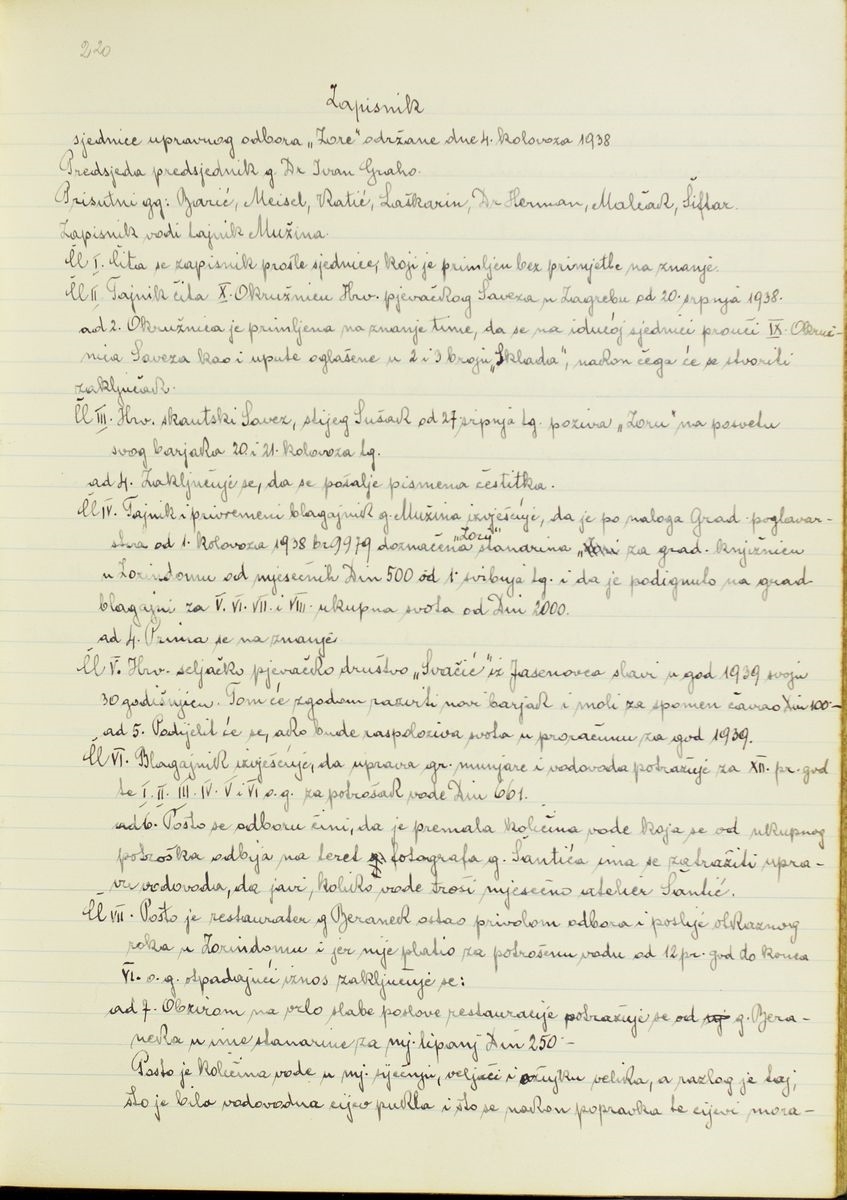 220
Zapisnik
sjednice upravnog odbora „Zore“ održane dne 4. kolovoza 1938
Predsjeda predsjednik g. Dr Ivan Graho.
Prisutni gg: Barić, Meisel, Katić, Laškarin, Dr Herman, Malčak, Šiftar.
Zapisnik vodi tajnik Mužina.
Čl I. Čita se zapisnik prošle sjednice, koji je primljen bez primjetbe na znanje.
Čl II Tajnik čita X. Okružnicu Hrv. pjevačkog Saveza u Zagrebu od 20. srpnja 1938.
ad 2. Okružnica je primljena na znanje time, da se na idućoj sjednici prouči IX. Okruž-
nica Saveza kao i upute oglašene u 2 i 3 broju „Sklada“, nakon čega će se stvoriti
zaključak.
Čl III. Hrv. skautski Savez, stijeg Sušak od 27 srpnja tg. poziva „Zoru“ na posvetu
svog barjaka 20 i 21. kolovoza tg.
ad 4. Zaključuje se, da se pošalje pismena čestitka.
Čl IV. Tajnik i privremeni blagajnik g. Mužina izvješćuje, da je po naloga Grad. poglavar-
stva od 1. kolovoza 1938 br 9979 doznačena „Zori“ stanarina za grad. knjižnicu
u Zorindomu od mjesečnih Din 500 od 1. svibnja tg. i da je podignuto na grad.
blagajni za V. VI. VII. i VIII. ukupna svota od Din 2000.
ad 4. Prima se na znanje
Čl V. Hrv. seljačko pjevačko društvo „Svačić“ iz Jasenovca slavi u god 1939 svoju
30 godišnjicu. Tom će zgodom razviti novi barjak i moli za spomen čavao Din 100.–
ad 5. Podijelit će se, ako bude raspoloživa svota u proračunu za god 1939.
Čl VI. Blagajnik izvješćuje, da uprava gr. munjare i vodovoda potražuje za XII. pr. god
te I. II. III. IV. V i VI o. g. za potrošak vode Din 661.
ad 6. Pošto se odboru čini, da je premala količina vode koja se od ukupnog
potroška odbija na teret fotografa g. Šantića ima se zatražiti upra-
vu vodovoda, da javi, koliko vode troši mjesečno atelier Šantić.
Čl VII. Pošto je restaurater g Beranek ostao privolom odbora i poslije otkaznog
roka u Zorindomu i jer nije platio za potrošenu vodu od 12 pr. god do konca
VI. o. g. otpadajući iznos zaključuje se:
ad 7. Obzirom na vrlo slabe poslove restauracije potražuje se od g. Bera-
neka u ime stanarine za mj. lipanj Din 250.–
Pošto je količina vode u mj. siječnju, veljači i ožujku velika, a razlog je taj,
što je bila vodovodna cijev pukla i što se nakon popravka te cijevi mora-